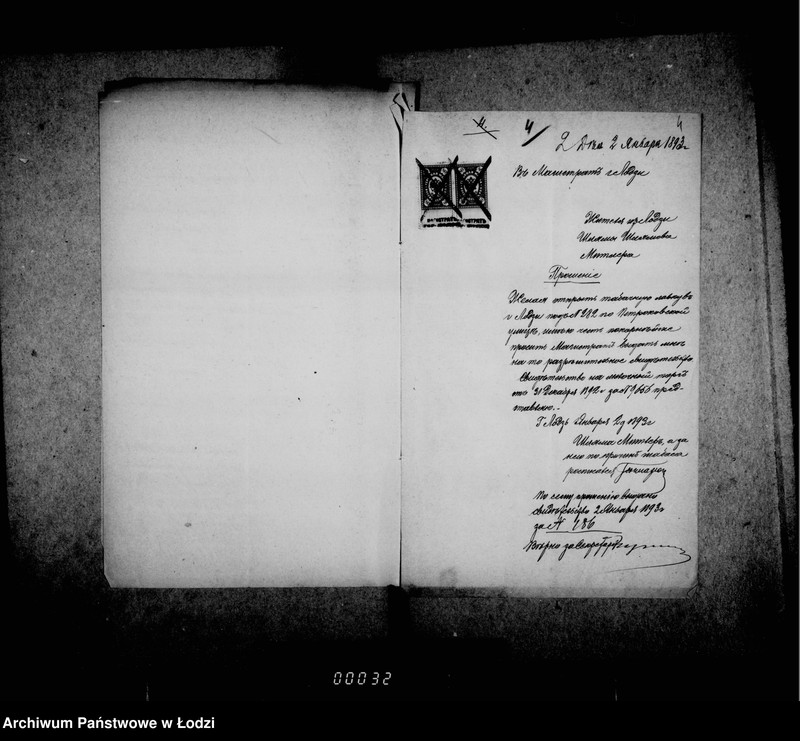 4.
4
4
2 Дня 2 Января 1893 г
Въ Магистратъ г Лодзи
Жителя г Лодзи
Шляма
Митлера
Прошеніе
Желая открыть табачную лавку въ
г Лодзи подъ № 292 по Петроковской
улицѣ, имѣю честь покорнѣйше
просить Магистратъ выдать мнѣ
на то разрѣшительное свидѣтельство
Свидѣтельство на мелочный торгъ
отъ 31 Декабря 1892 г за № 9656 пред-
ставляю.
Г Лодзь Января 2 д 1893 г
Шляма Митлеръ, а за
него по
росписался
По сему прошенію выдано
свидѣтельство 2 Января 1893 г
за № 286
Вѣрно за Секретаря
00032
Archiwum Państwowe w Łodzi